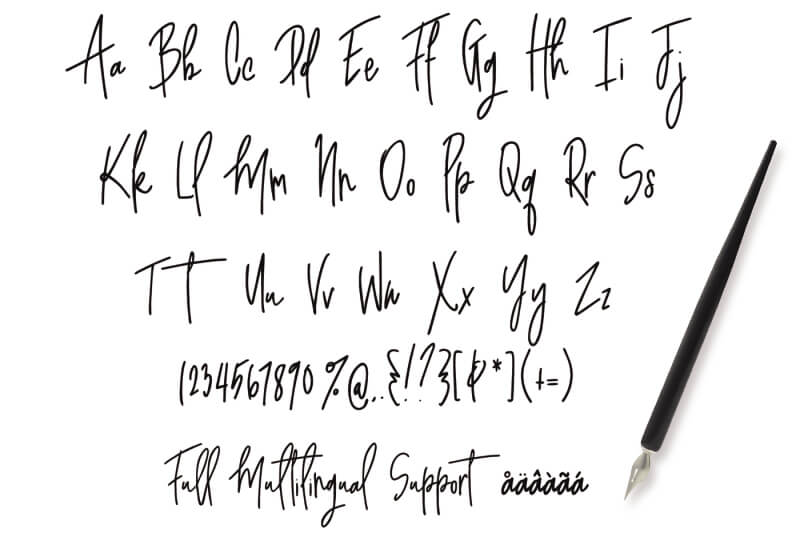 Aa Bb Cc Dd Ee Ff Gg Hh Ii Jj
Kk Ll Mm Nn Oo Pp Qq Rr Ss
Tt Uu Vv Ww Xx Yy Zz
1234567890 %@,.{!?}[ *](+=)
Full Multilingual Support åäâàãá